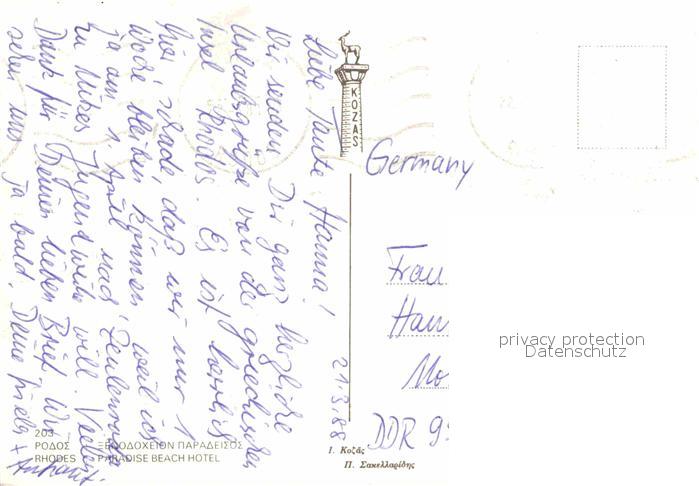 21.3.88
Liebe Tante Hanna!
Wir senden Dir ganz herzliche
Urlaubsgrüße von der griechischen
Insel Rhodos. Es ist herrlich
hier, schade, daß wir nur 1
Woche bleiben können, weil ich
ja am 1. April nach Zeulenroda
zu Jugendweihe will. Vielen
Dank für Deinen lieben Brief. Wir
sehen uns ja bald. Deine
KOZAS
Germany
Frau
Han
Mo
DDR 9
privacy protection
Datenschutz
203
ΡΟΔΟΣ ΞΕΝΟΔΟΧΕΙΟΝ ΠΑΡΑΔΕΙΣΟΣ
RHODES PARADISE BEACH HOTEL
Ι. Κοζάς
Π. Σακελλαρίδης